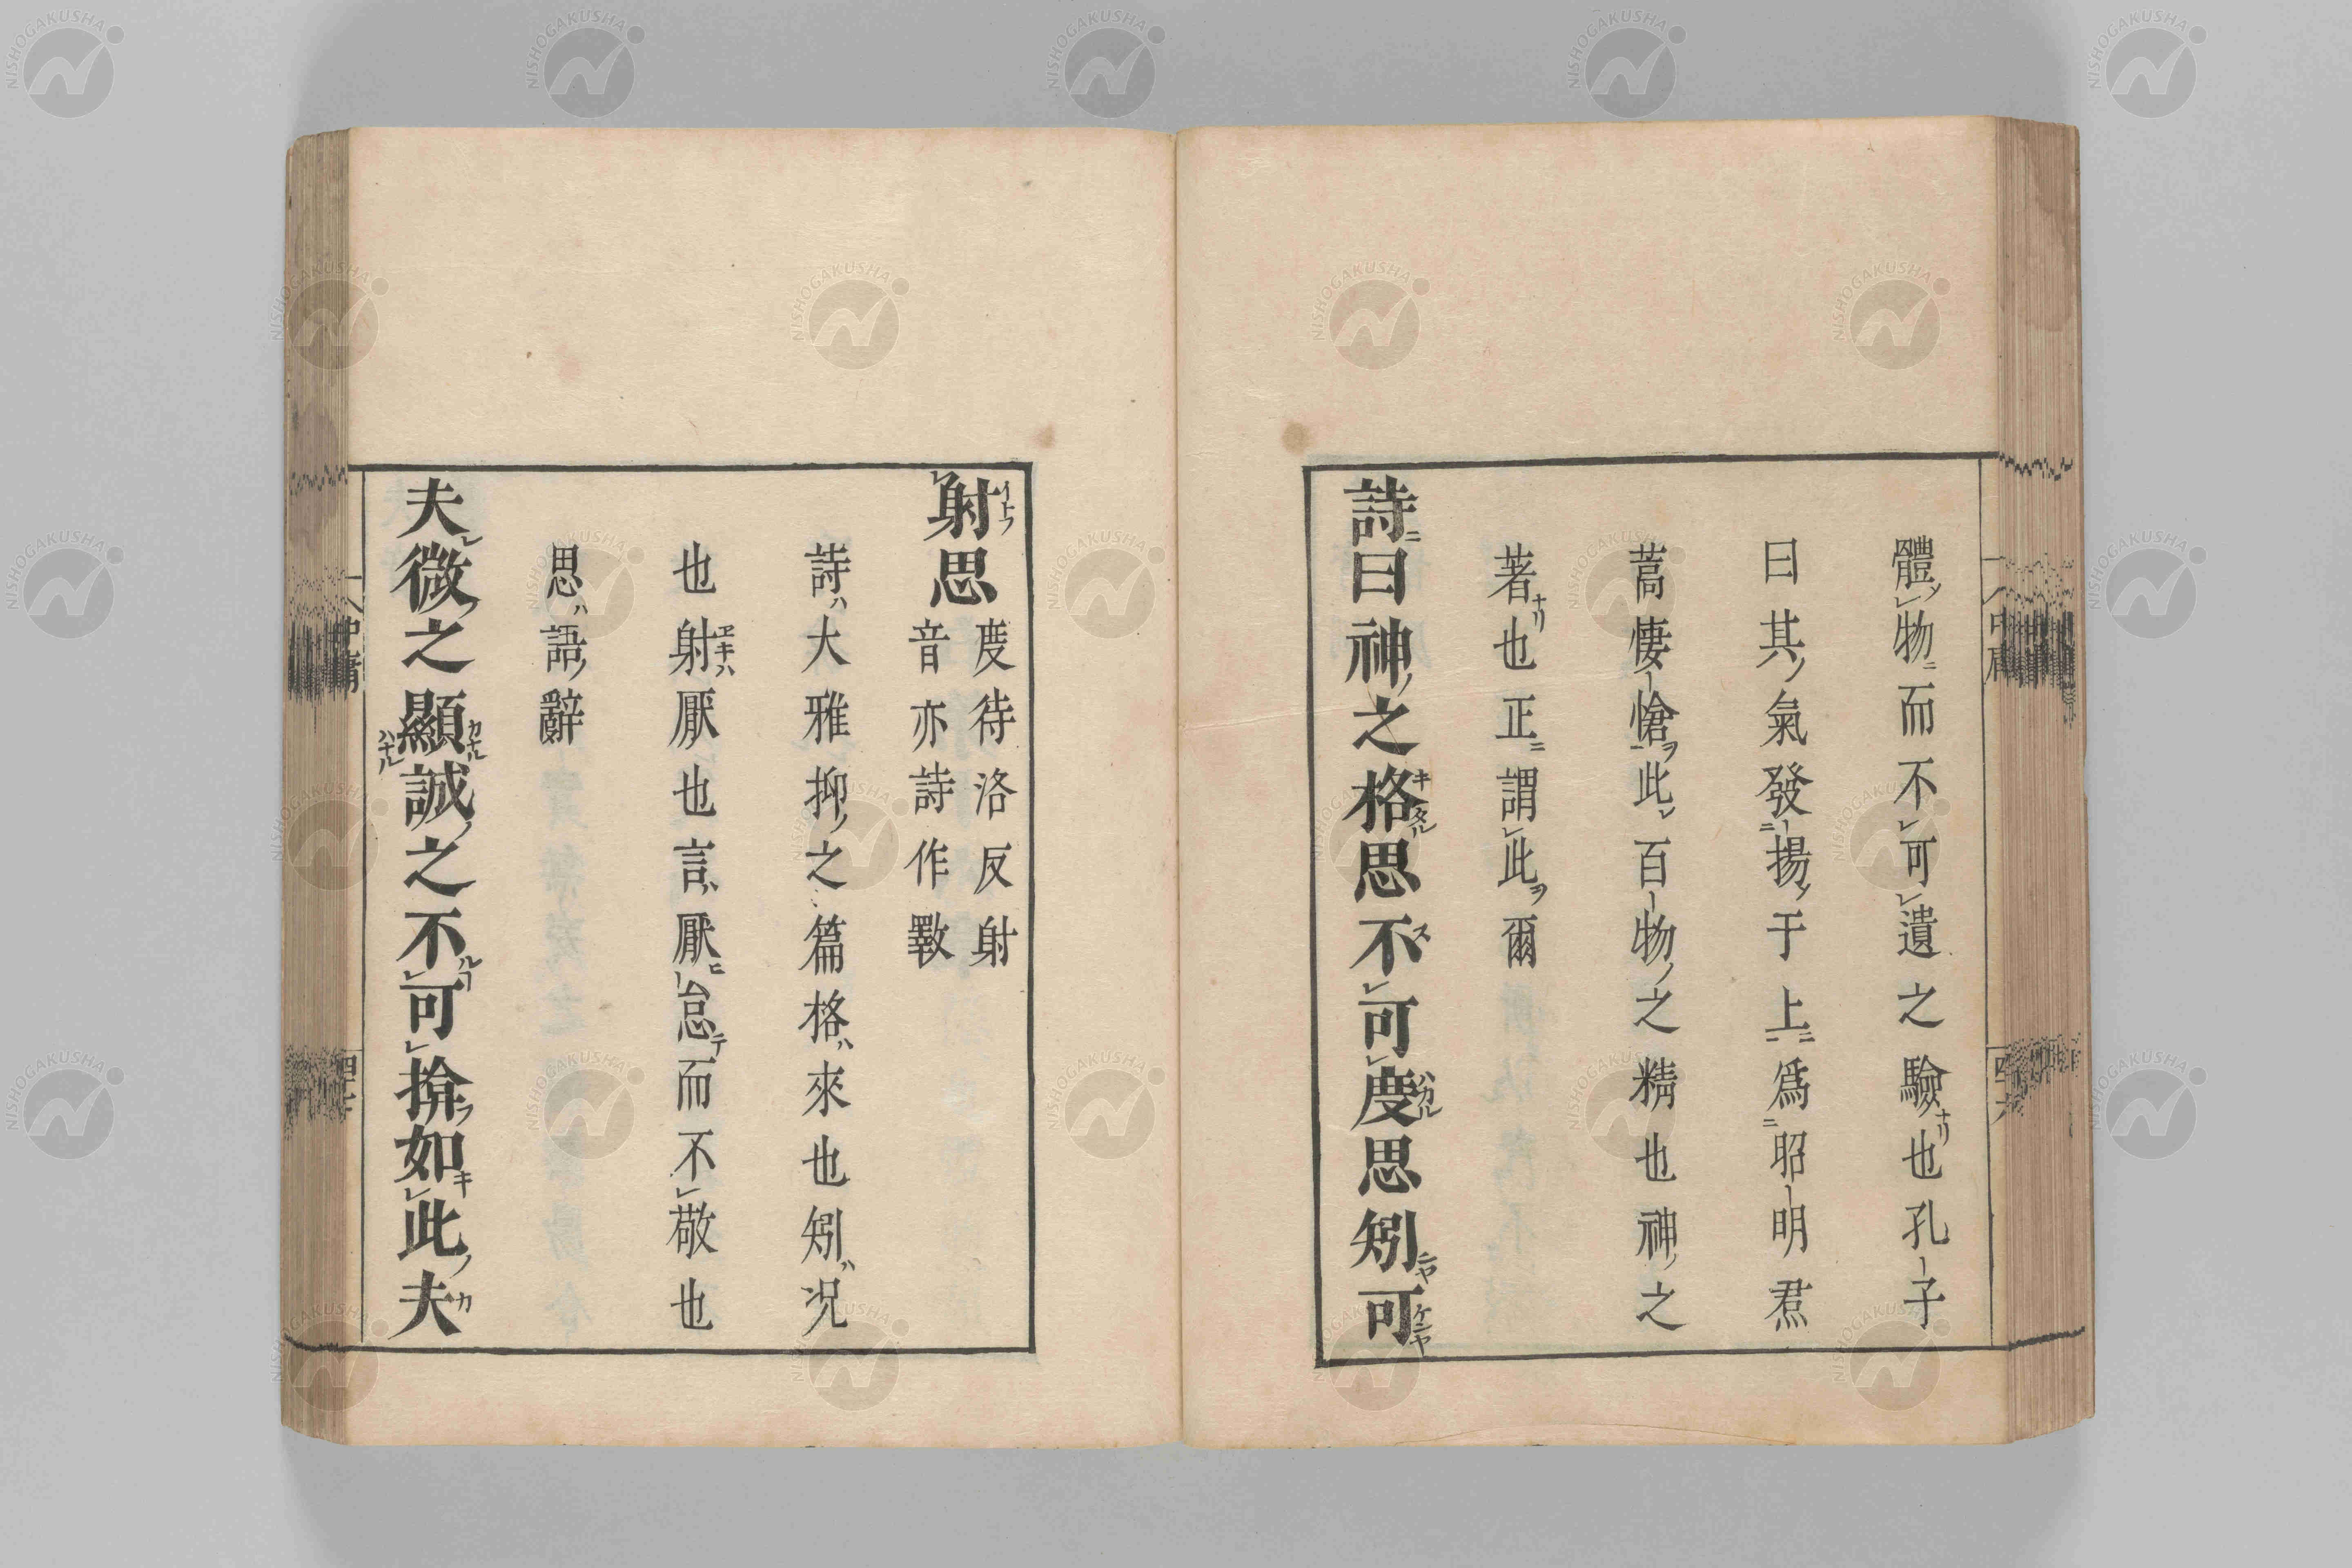 體物而不可遺之驗也孔子
曰其氣發揚于上爲昭明焄
蒿悽愴此百物之精也神之
著也正謂此爾
詩曰神之格思不可度思矧可
射思
度待洛反射
音亦詩作斁
詩大雅抑之篇格來也矧況
也射厭也言厭怠而不敬也
思語辭
夫微之顯誠之不可揜如此夫
中庸
四十七
NISHOGAKUSHA